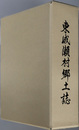 東成瀬村郷土誌